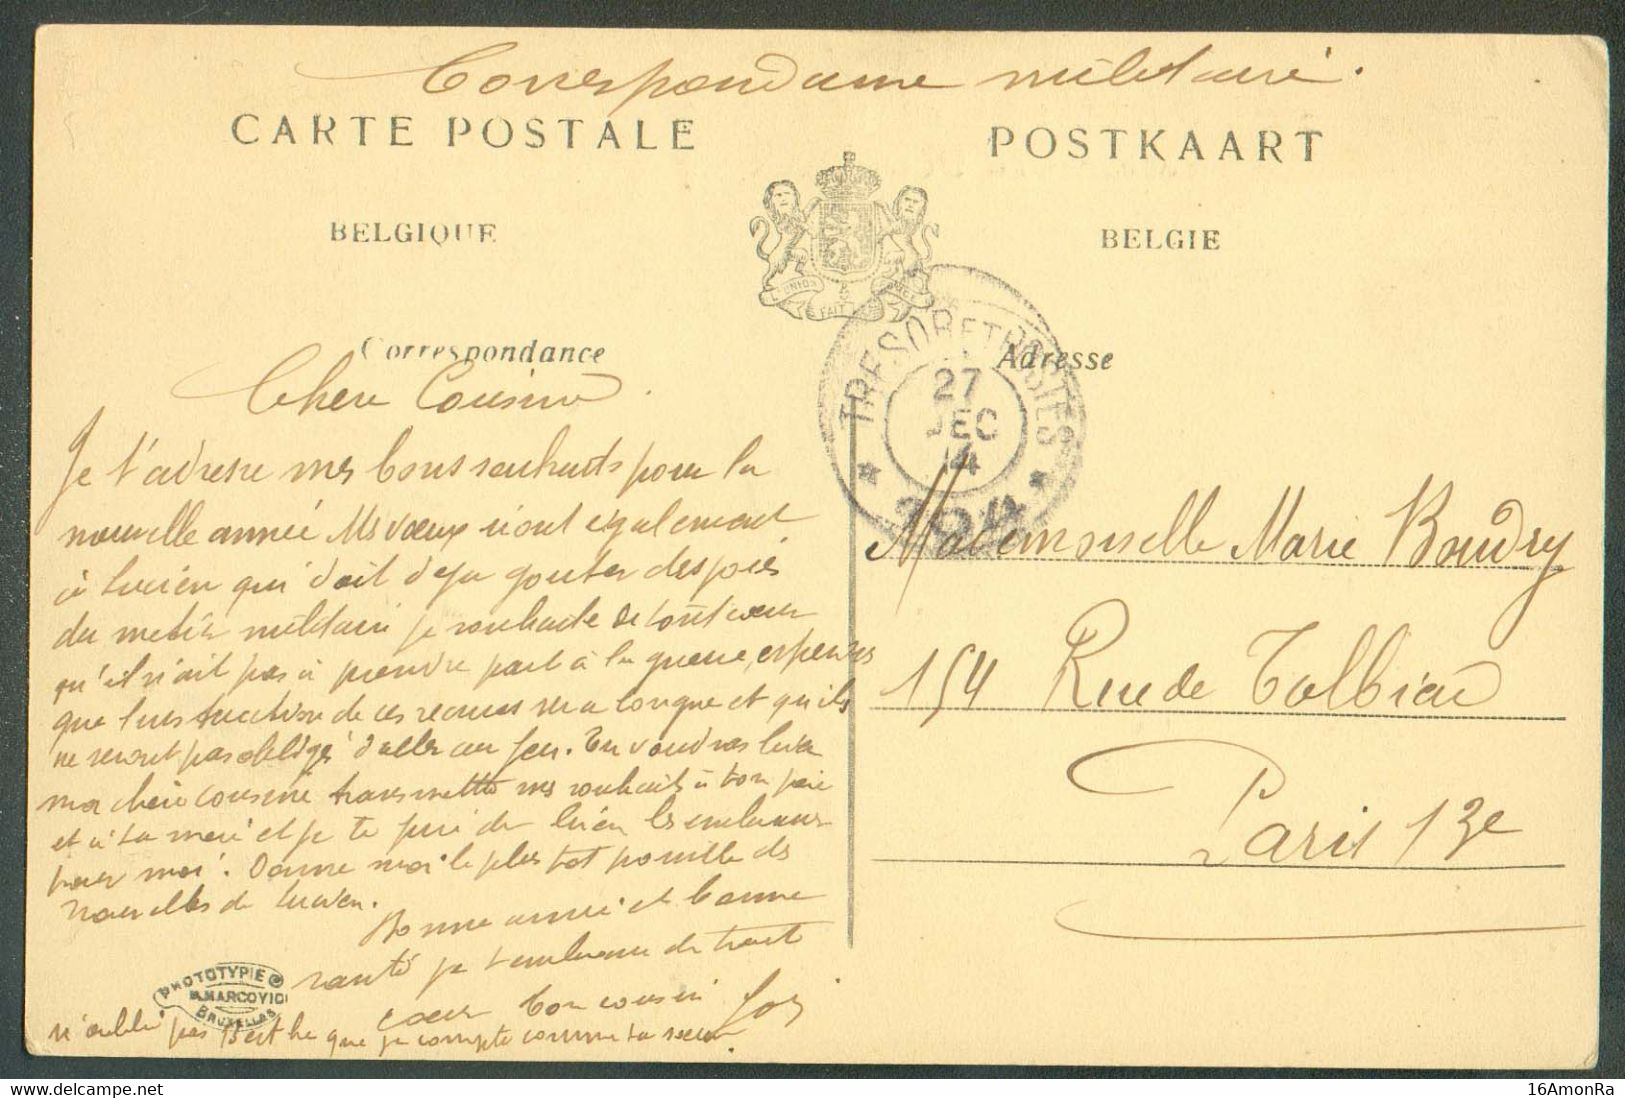 Correspondance militaire.
CARTE POSTALE
POSTKAART
BELGIQUE
BELGIE
L'UNION FAIT LA FORCE
Correspondance
Adresse
TRESOR ET POSTES
27
DEC
14
* 204 *
Chère Cousine.
Je t'adresse mes bons souhaits pour la
nouvelle année Mes vœux vont également
à Lucien qui doit deja gouter des joies
du metier militaire je souhaite de tout cœur
qu'il n'ait pas à prendre part à la guerre, esperons
que l'instruction de ces recrues sera longue et qu'ils
ne seront pas obligé d'aller au feu. Tu voudras bien
ma chère cousine transmettre mes souhaits à ton père
et à ta mère et je te prie de bien les embrasser
pour moi. Donne moi le plus tot possible des
nouvelles de Lucien.
Bonne année et bonne
santé je t'embrasse de tout
cœur ton cousin
n'oublie pas Berthe que je compte comme ta sœur.
PHOTOTYPIE
M. MARCOVICI
BRUXELLES
Mademoiselle Marie Baudry
154 Rue de Tolbiac
Paris 13e
16AmonRa